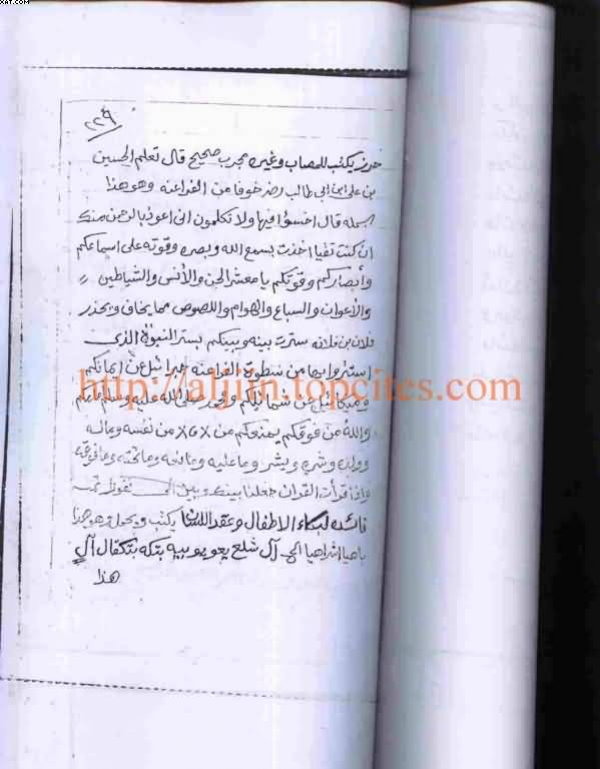 XAT.COM
٢٢٩
حرز يكتب للمصاب وغيره مجرب صحيح قال تعلم الحسين
بن علي ابن ابي طالب رضر خوفا من الفراعنه وهو هذا
بسمله قال اخسؤا فيها ولا تكلمون انى اعوذ بالرحمن منك
ان كنت تقيا اخذت بسمع الله وبصره وقوته على اسماعكم
وأبصاركم وقوتكم يا معشر الجن والأنس والشياطين
والأعوان والسباع والهوام واللصوص مما يخاف ويحذر
فلان بن فلانه سترت بينه وبينكم بستر النبوة الذى
استتروا بها من سطوة الفراعنه جبرائيل عن ايمانكم
وميكائيل عن شمائلكم ومحمد صلى الله عليه وسلم امامكم
http://aljiin.topcites.com
والله من فوقكم يمنعكم من من نفسه وماله
وولده وشره وبشر وما عليه وما معه وما تحته وما فوقه
فإذا قرأت القرآن جعلنا بينك وبين الى نفورا تمت
فائده لبكاء الاطفال وعقد اللسان يكتب ويحمل وهو هذا
ياهيا اشراهيا الى آل شلع يعو يوبيه بتكه بتكفال آل
هذا